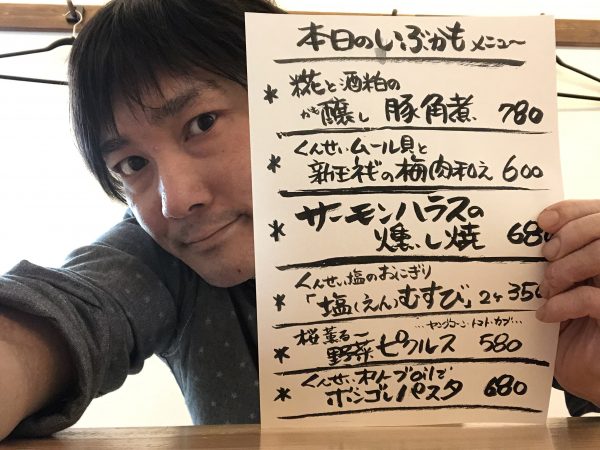 本日のいぶかもメニュー
* 糀と酒粕の
かも醸し 豚角煮 780
* くんせいムール貝と
新玉ネギの梅肉和え 600
* サーモンハラスの
燻し焼 680
* くんせい塩のおにぎり
「塩(えん)むすび」2ヶ 350
…ヤングコーン・トマト・カブ…
* 桜薫る〜
野菜ピクルス 580
* くんせいオリーブoilで
ボンゴレパスタ 680